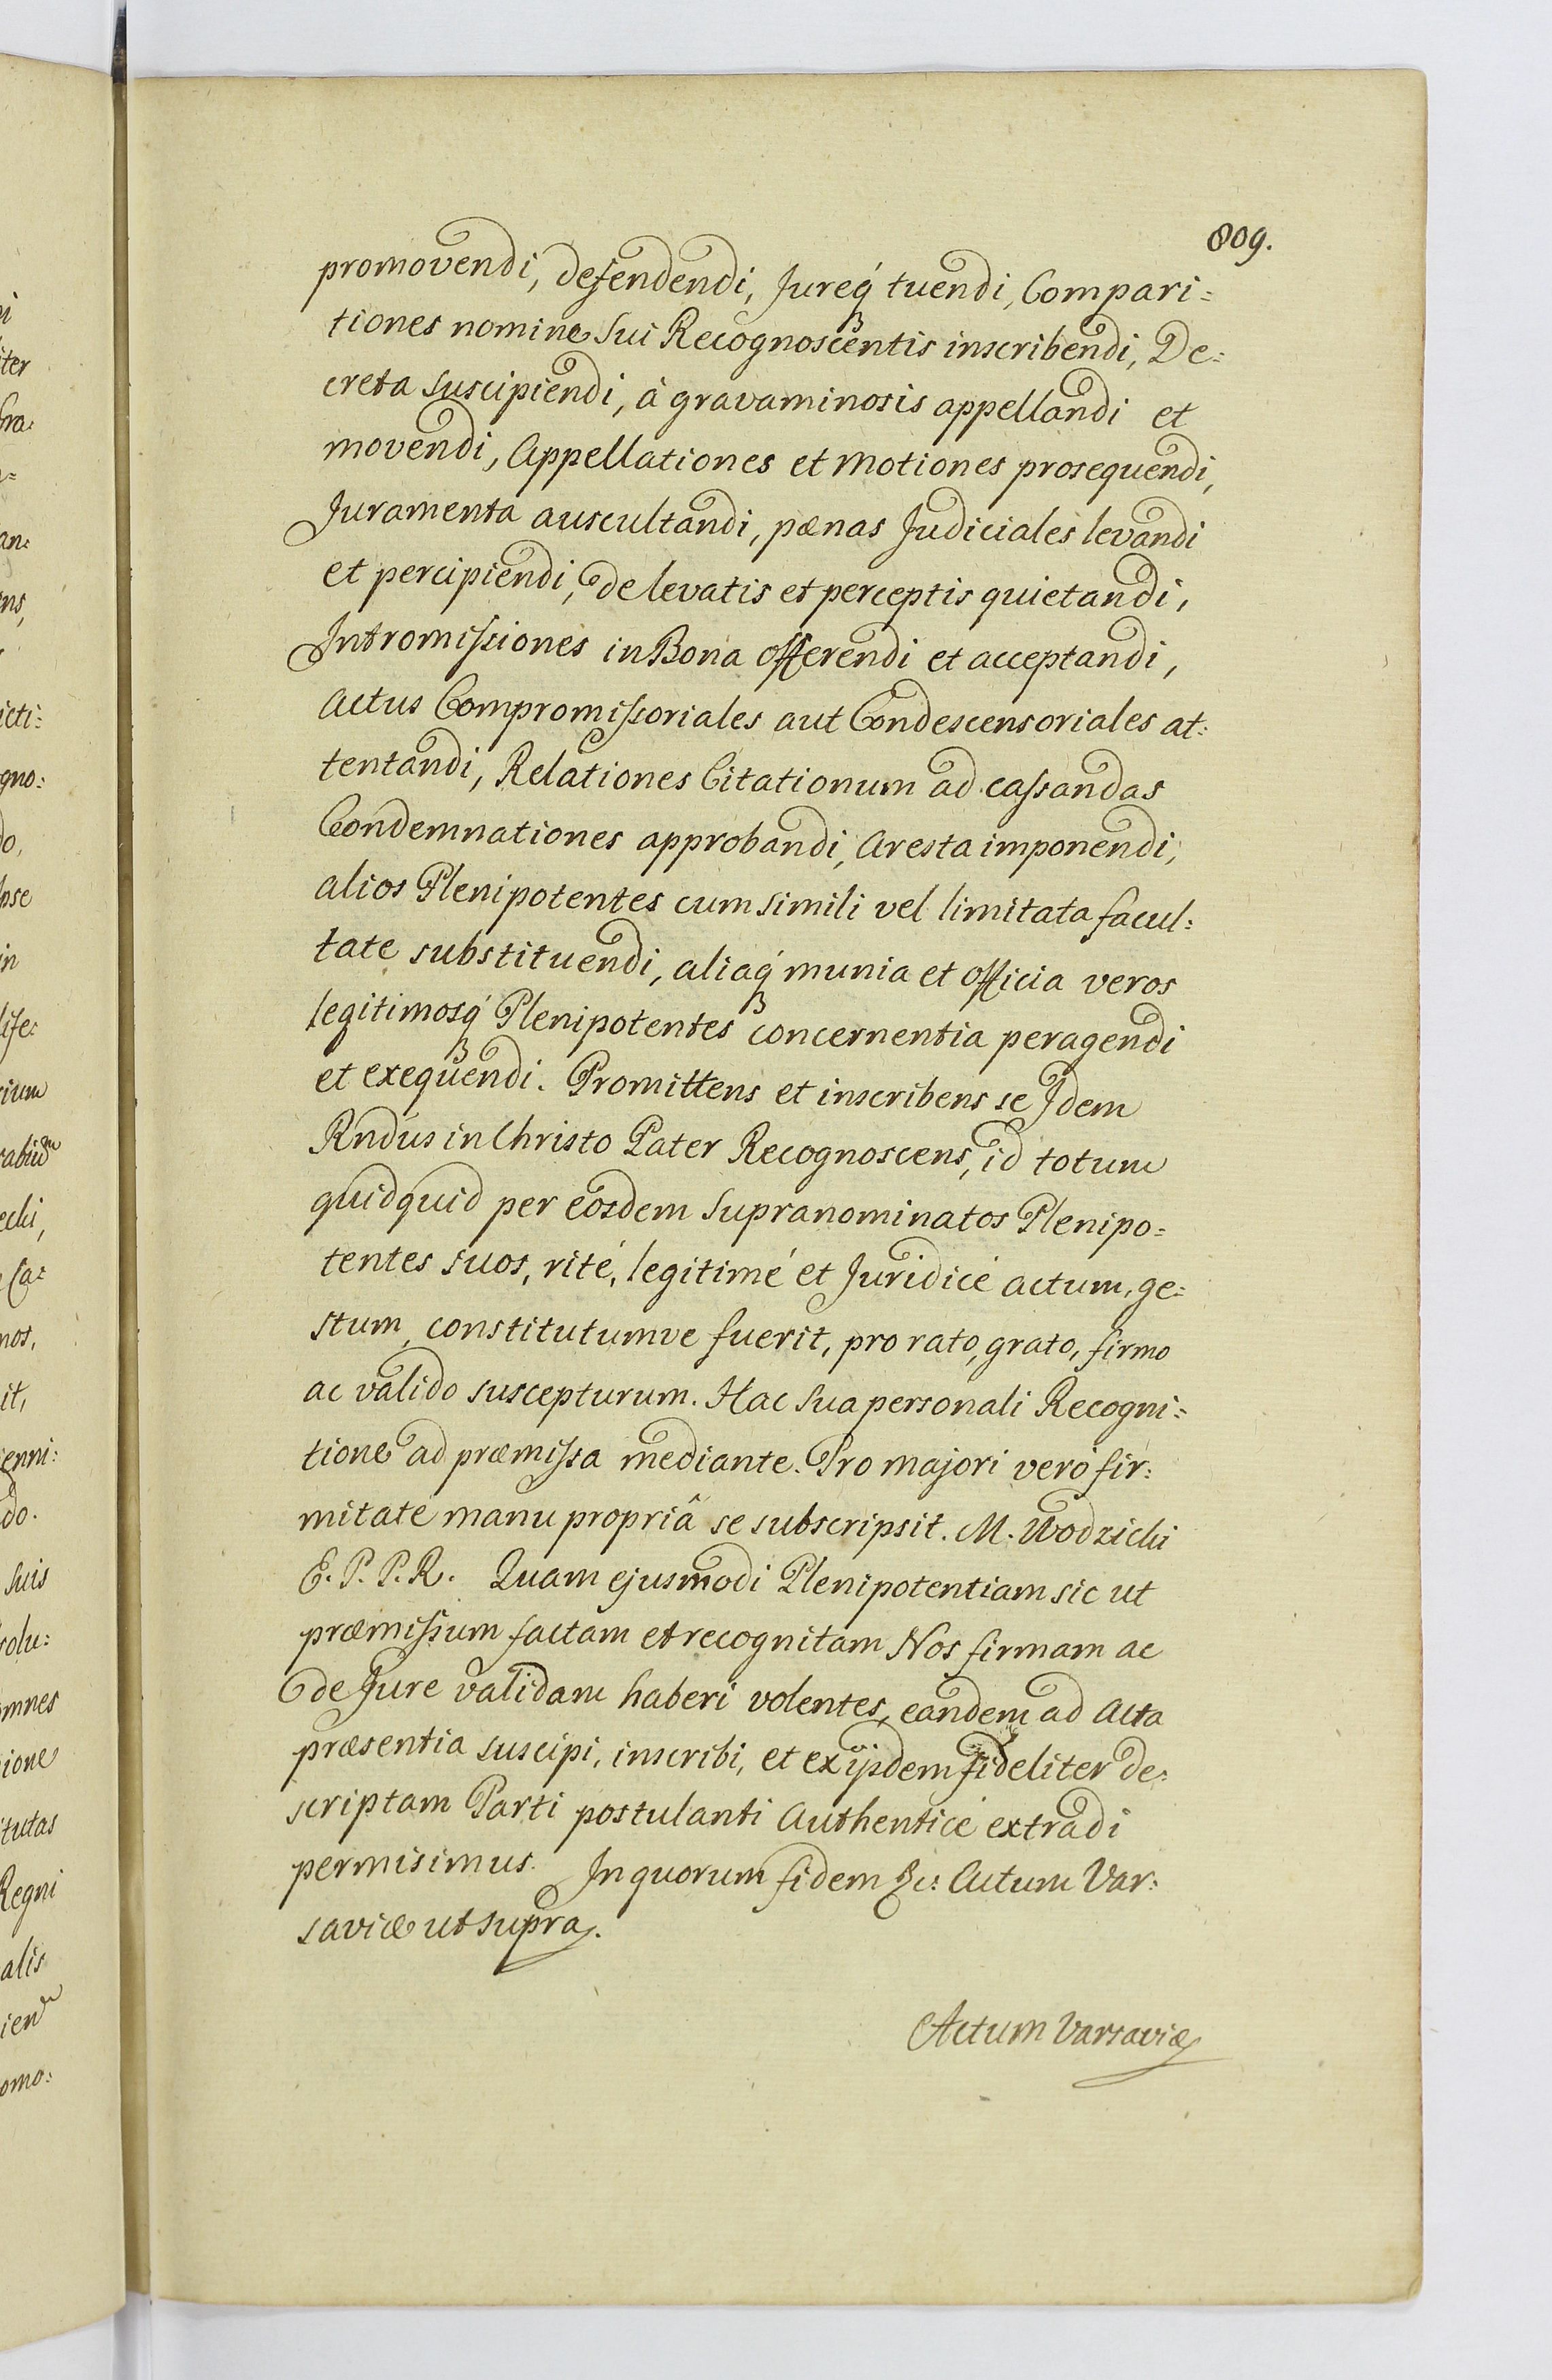 809.
promovendi, defendendi, Jureq́ tuendi, Compari=
tiones nomine sui Recognoscentis inscribendi, De=
creta suscipiendi, à gravaminosis appellandi et
movendi, Appellationes et motiones prosequendi,
Juramenta auscultandi, pœnas Judiciales levandi
et percipiendi, de levatis et perceptis quietandi,
Intromissiones in Bona offerendi et acceptandi,
actus Compromissoriales aut Condescensoriales at=
tentandi, Relationes Citationum ad cassandas
Condemnationes approbandi, Aresta imponendi,
alios Plenipotentes cum simili vel limitata facul=
tate substituendi, aliaq́ munia et officia veros
legitimosq́ Plenipotentes concernentia peragendi
et exequendi. Promittens et inscribens se Idem
Rndus in Christo Pater Recognoscens, id totum
quidquid per eosdem supranominatos Plenipo=
tentes suos, rité, legitimé et Juridicé actum, ge=
stum, constitutumve fuerit, pro rato, grato, firmo
ac valido suscepturum. Hac sua personali Recogni=
tione ad præmissa mediante. Pro majori veró fir=
mitate manu propriâ se subscripsit. M. Wodzicki
E. P. P. R. Quam ejusmodi Plenipotentiam sic ut
præmissum factam et recognitam Nos firmam ac
de Jure validam haberi volentes, eandem ad Acta
præsentia suscipi, inscribi, et ex ijsdem fideliter de=
scriptam Parti postulanti Authenticé extradi
permisimus. In quorum fidem &c: Actum Var=
saviæ ut supra.
Actum Varsaviæ